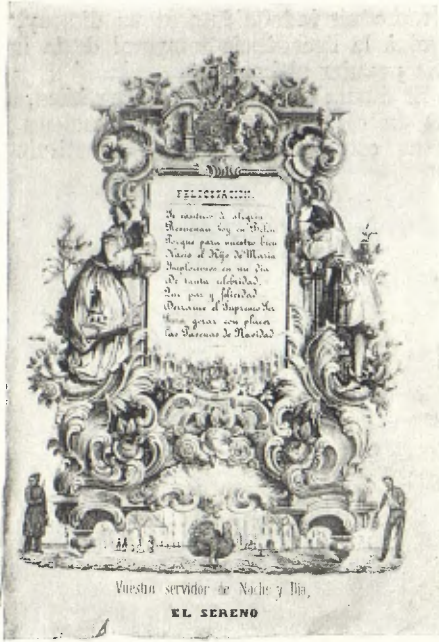 FELICITACION.
De alegria
Resuenan hoy en Belen
Porque para nuestro bien
Nacio el Hijo de Maria
Imploremos en un dia
De tanta celebridad,
Que paz y felicidad
Derrame el Supremo Ser
Para gozar con placer
Las Pascuas de Navidad
Vuestro servidor de Noche y Dia,
EL SERENO